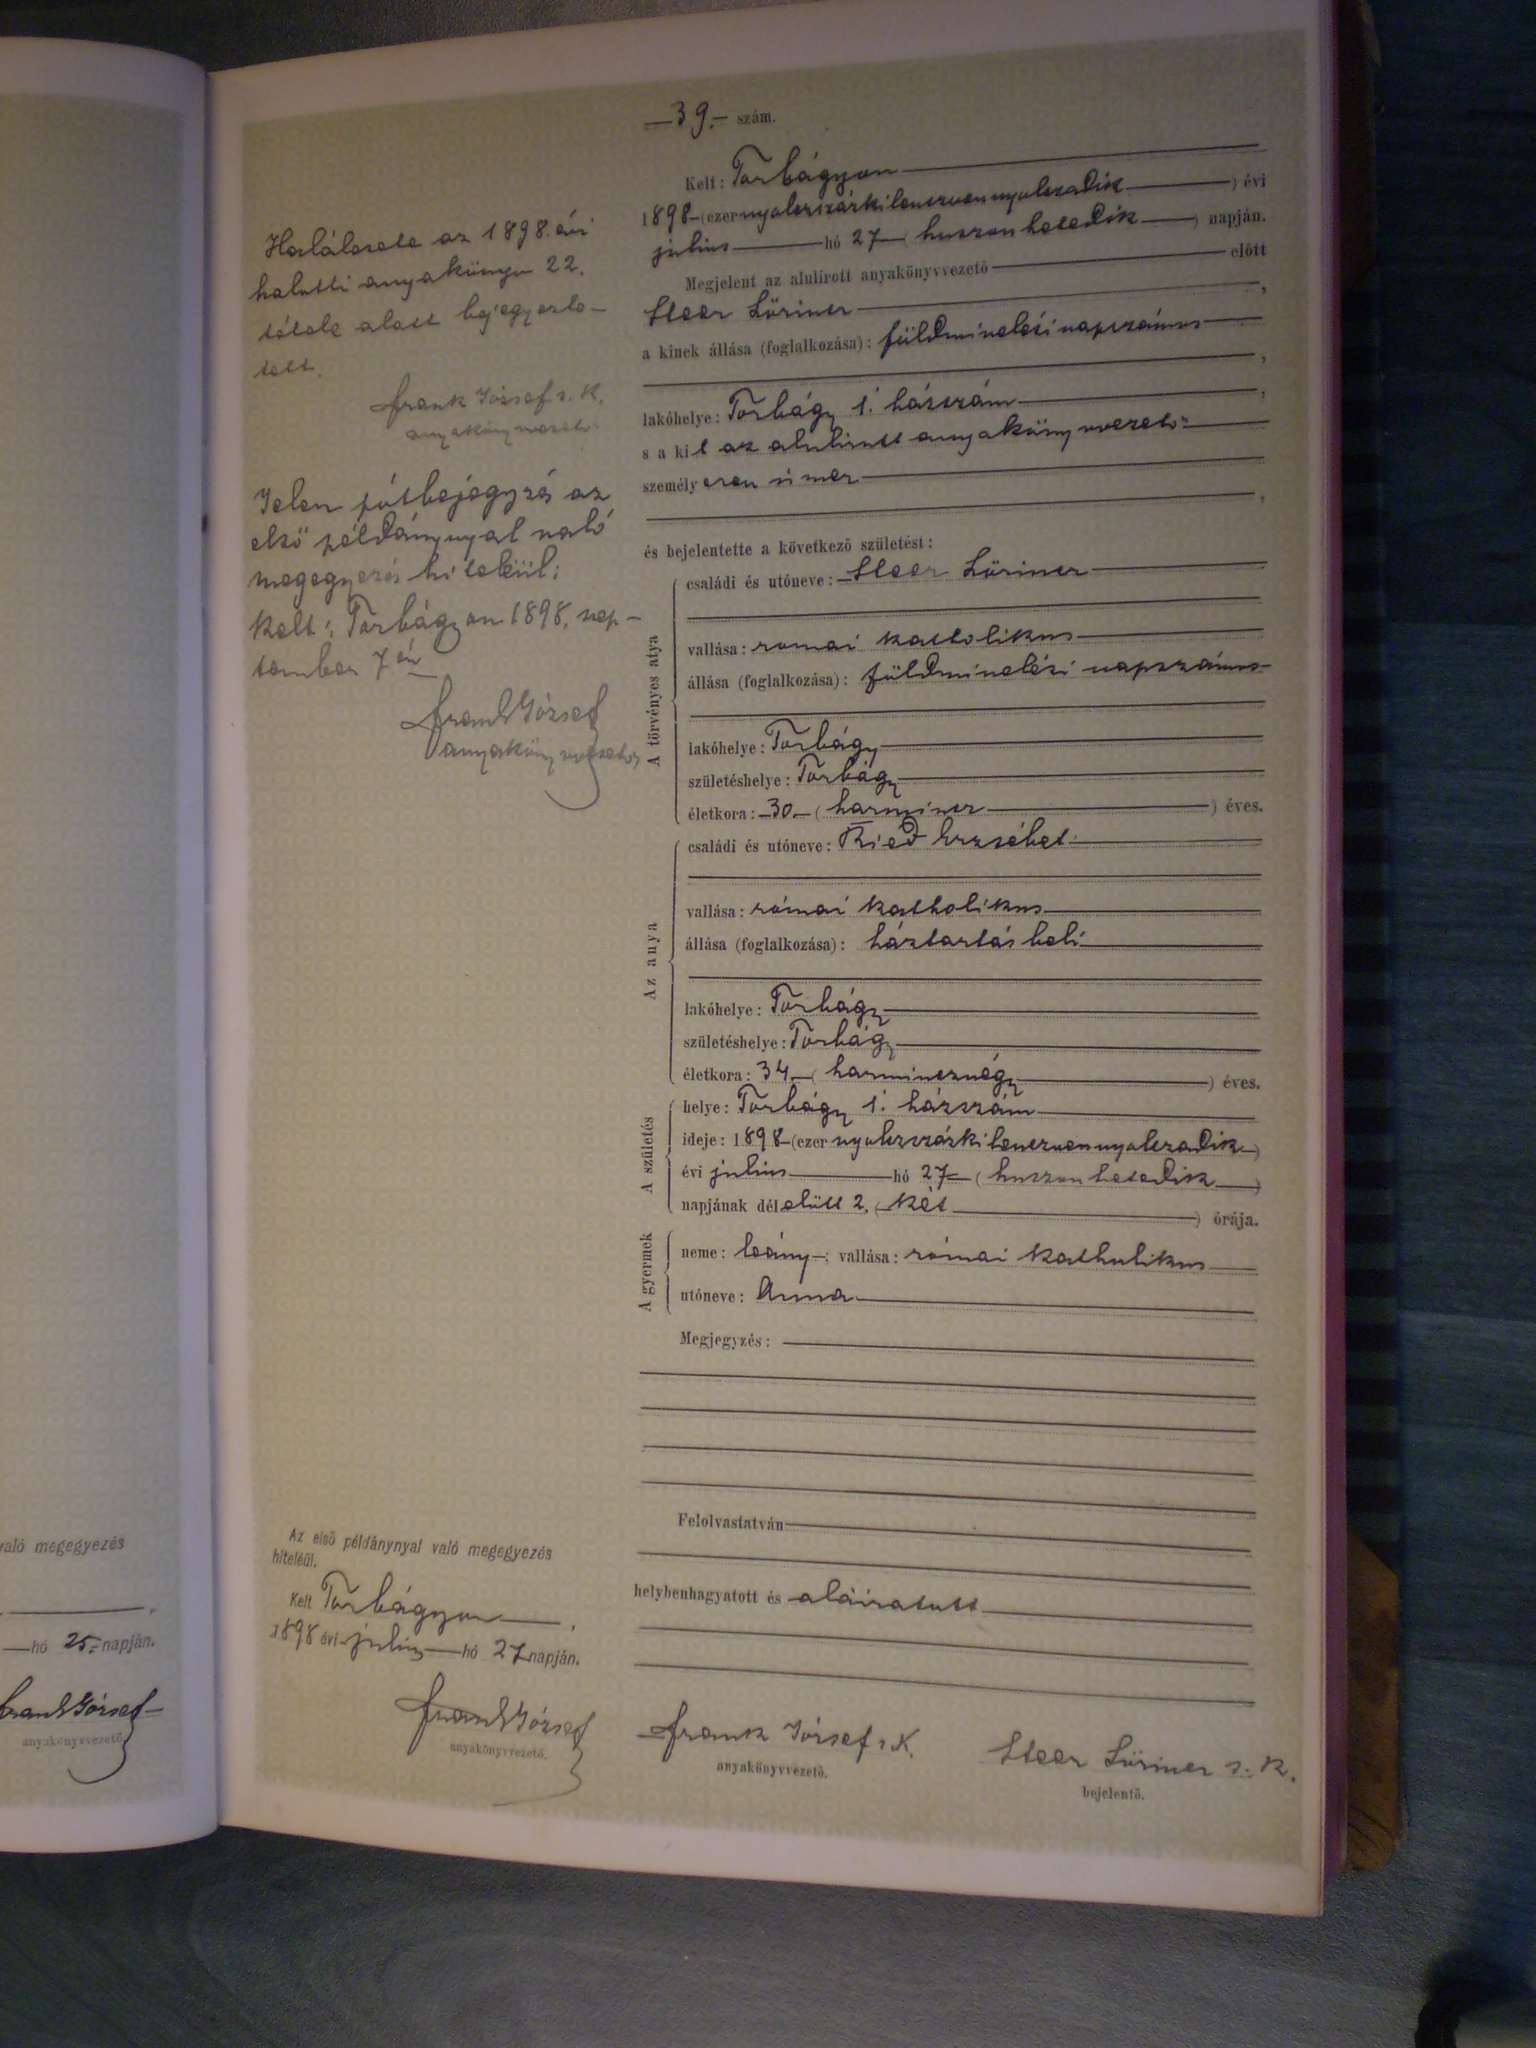 —39.— szám.
Kelt: Torbágyon
1898—(ezernyolczszázkilenczvennyolczadik) évi
július hó 27—(huszonhetedik) napján.
Megjelent az alulírott anyakönyvvezető előtt
Steer Lőrincz,
a kinek állása (foglalkozása): földmívelési napszámos
,
lakóhelye: Torbágy 1. házszám,
s a kit az alulírott anyakönyvvezető
személyesen ismer
,
és bejelentette a következő születést:
A törvényes atya
családi és utóneve: Steer Lőrincz
vallása: római katholikus
állása (foglalkozása): földmívelési napszámos
lakóhelye: Torbágy
születéshelye: Torbágy
életkora: —30—(harmincz) éves.
Az anya
családi és utóneve: Ried Erzsébet
vallása: római katholikus
állása (foglalkozása): háztartásbeli
lakóhelye: Torbágy
születéshelye: Torbágy
életkora: 34—(harmincznégy) éves.
A születés
helye: Torbágy 1. házszám
ideje: 1898—(ezernyolczszázkilenczvennyolczadik)
évi július hó 27—(huszonhetedik)
napjának délelőtt 2. (két) órája.
A gyermek
neme: leány—; vallása: római katholikus
utóneve: Anna
Megjegyzés:
Felolvastatván
helybenhagyatott és aláiratott
Frank József s. K.
anyakönyvvezető.
Steer Lőrincz s. K.
bejelentő.
Halálesete az 1898. évi
halotti anyakönyv 22.
tétele alatt bejegyezte-
tett.
Frank József s. K.
anyakönyvvezető
Jelen pótbejegyzés az
első példánynyal való
megegyezés hiteléül:
Kelt: Torbágyon 1898. sep-
tember 7 én
Frank József
anyakönyvvezető
Az első példánynyal való megegyezés
hiteléül.
Kelt Torbágyon,
1898 évi július hó 27 napján.
Frank József
anyakönyvvezető.
való megegyezés
,
—hó 25.— napján.
Frank József
anyakönyvvezető